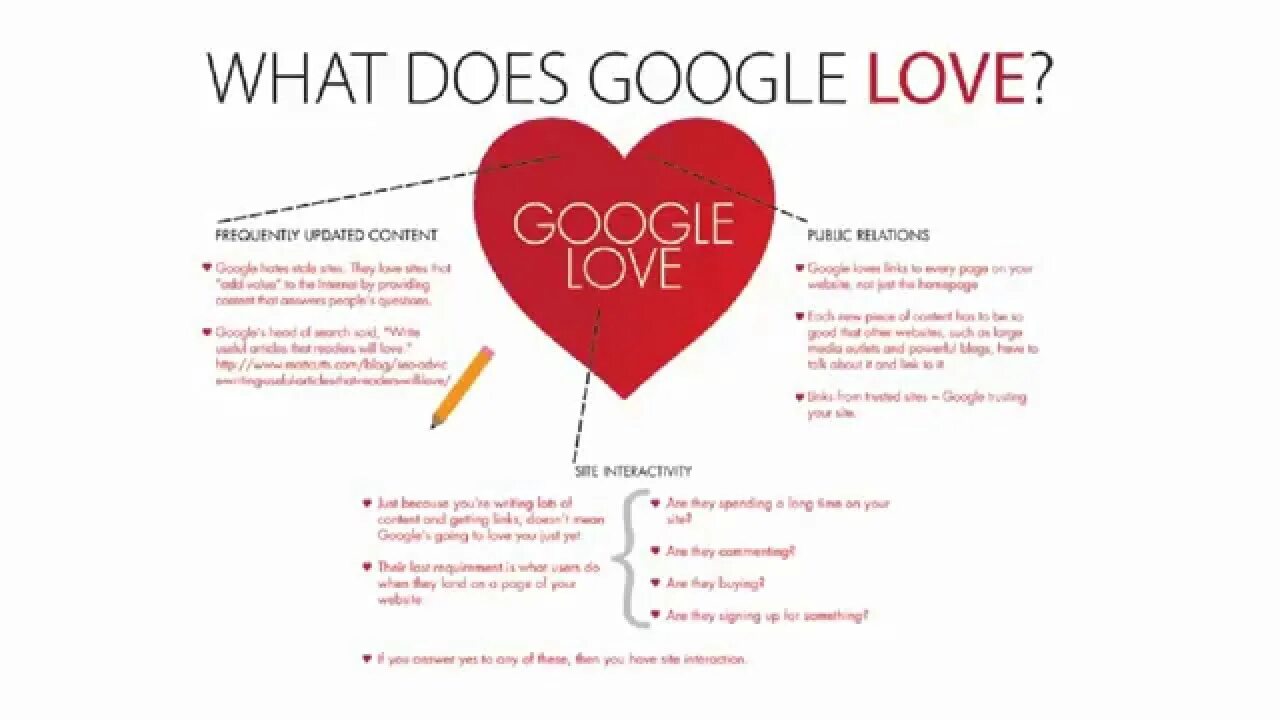 WHAT DOES GOOGLE LOVE?
GOOGLE
LOVE
FREQUENTLY UPDATED CONTENT
Google hates stale sites. They love sites that
"add value" to the Internet by providing
content that answers people's questions.
Google's head of search said, "Write
useful articles that readers will love."
http://www.mattcutts.com/blog/seo-advic
e-writing-useful-articles-that-readers-will-love/
PUBLIC RELATIONS
Google loves links to every page on your
website, not just the homepage
Each new piece of content has to be so
good that other websites, such as large
media outlets and powerful blogs, have to
talk about it and link to it
Links from trusted sites = Google trusting
your site.
SITE INTERACTIVITY
Just because you're writing lots of
content and getting links, doesn't mean
Google's going to love you just yet
Their last requirment is what users do
when they land on a page of your
website.
Are they spending a long time on your
site?
Are they commenting?
Are they buying?
Are they signing up for something?
If you answer yes to any of these, then you have site interaction.